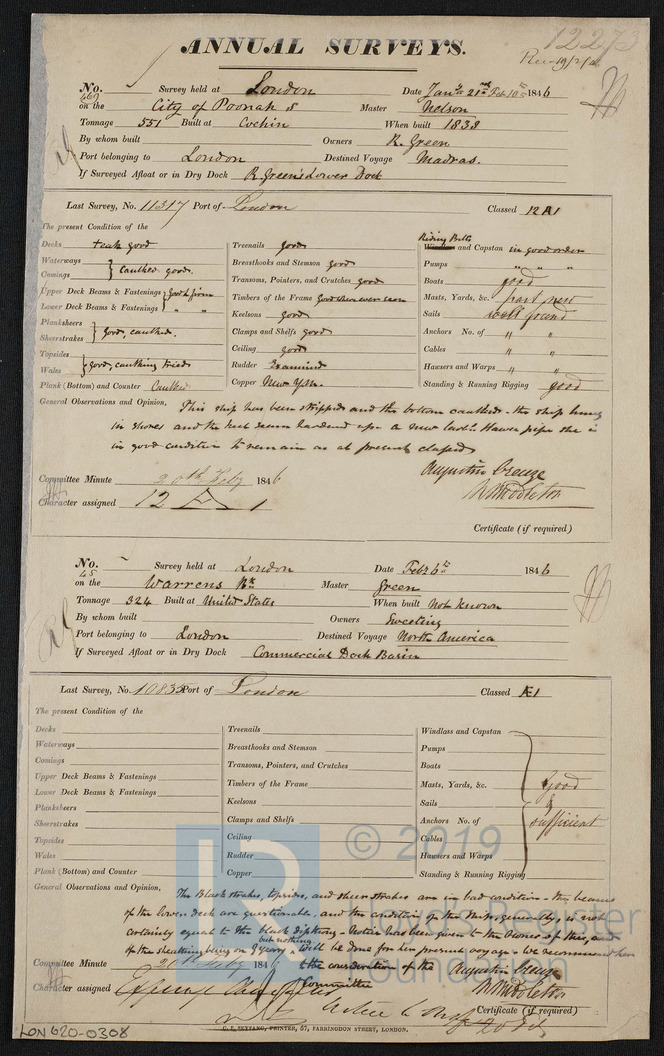 12273
Rec 19/2/46
ANNUAL SURVEYS.
No. 469 Survey held at London Date Jany 21st Feb 10th 1846
on the City of Poonah S Master Nelson
Tonnage 551 Built at Cochin When built 1838
By whom built Owners R. Green
Port belonging to London Destined Voyage Madras.
If Surveyed Afloat or in Dry Dock R Green's Lower Dock
Last Survey, No. 11317 Port of London Classed 12 A 1
The present Condition of the
Decks teak good
Waterways
Comings } caulked good.
Upper Deck Beams & Fastenings } Good & firm
Lower Deck Beams & Fastenings } " "
Planksheers
Sheerstrakes } good, caulked.
Topsides
Wales } good, caulking tried
Plank (Bottom) and Counter Caulked
Treenails good
Breasthooks and Stemson good
Transoms, Pointers, and Crutches good
Timbers of the Frame Good wherever seen
Keelsons good
Clamps and Shelfs good
Ceiling good
Rudder Examined
Copper New Y.M.
Riding Bitts
Windlass and Capstan in good order
Pumps " " "
Boats good
Masts, Yards, &c. part new
Sails well found
Anchors No. of " "
Cables " "
Hawsers and Warps " "
Standing & Running Rigging good
General Observations and Opinion, This ship has been stripped and the bottom caulked - the ship being
in shores and the keel seam hardened up a new Hawse pipe she is
in good condition to remain as at present classed
Augustin Creuze
Middleton
Committee Minute 20th Feby 1846
Character assigned 12 A 1
Certificate (if required)
No. 45 Survey held at London Date Feb 6th 1846
on the Warrens Bk Master Green
Tonnage 324 Built at United States When built Not Known
By whom built Owners Sweeting
Port belonging to London Destined Voyage North America
If Surveyed Afloat or in Dry Dock Commercial Dock Basin
Last Survey, No. 10835 Port of London Classed Æ1
The present Condition of the
Decks
Waterways
Comings
Upper Deck Beams & Fastenings
Lower Deck Beams & Fastenings
Planksheers
Sheerstrakes
Topsides
Wales
Plank (Bottom) and Counter
Treenails
Breasthooks and Stemson
Transoms, Pointers, and Crutches
Timbers of the Frame
Keelsons
Clamps and Shelfs
Ceiling
Rudder
Copper
Windlass and Capstan
Pumps
Boats
Masts, Yards, &c.
Sails
Anchors No. of
Cables
Hawsers and Warps
Standing & Running Rigging
good
&
sufficient
General Observations and Opinion, The Black strakes, topsides, and sheerstrakes are in bad condition - the beams
of the lower deck are questionable, and the condition of the Ship, generally, is not
certainly equal to the black diphthong - Notice has been given to the Owner of this, and
of the sheathing being on 3 years but nothing will be done for her present voyage - We recommend her
to the consideration of the
Committee
Augustin Creuze
Middleton
Committee Minute 20th Feby 1846
Character assigned
Certificate (if required)
C. F. SEYFANG, PRINTER, 57, FARRINGDON STREET, LONDON.
LON 620-0308
LR
© 2019
Lloyd's Register
Foundation